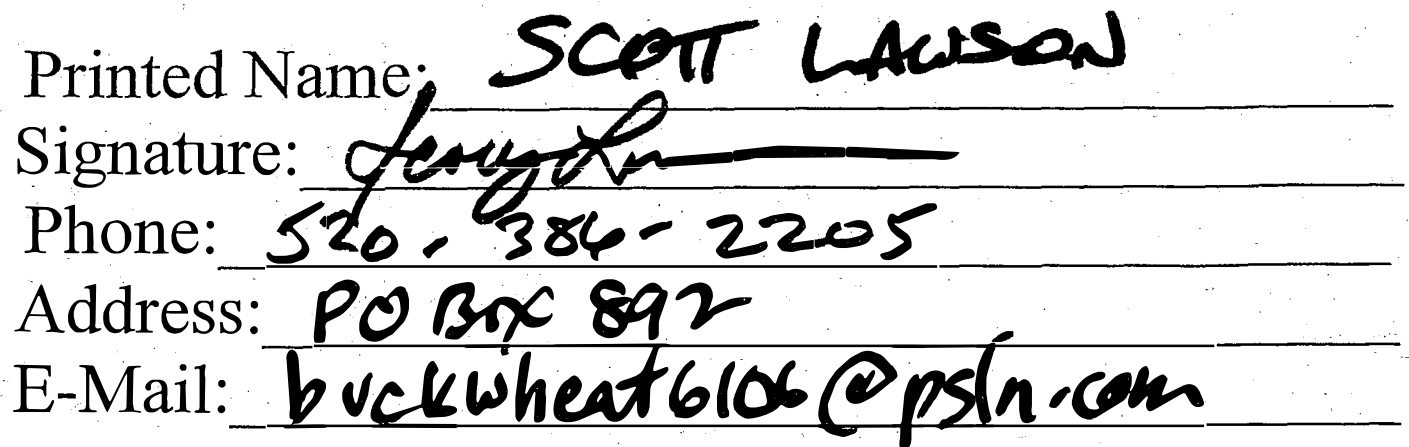 Printed Name: SCOTT LAWSON
Signature:
Phone: 520-386-2205
Address: PO Box 892
E-Mail: buckwheat6106@psln.com